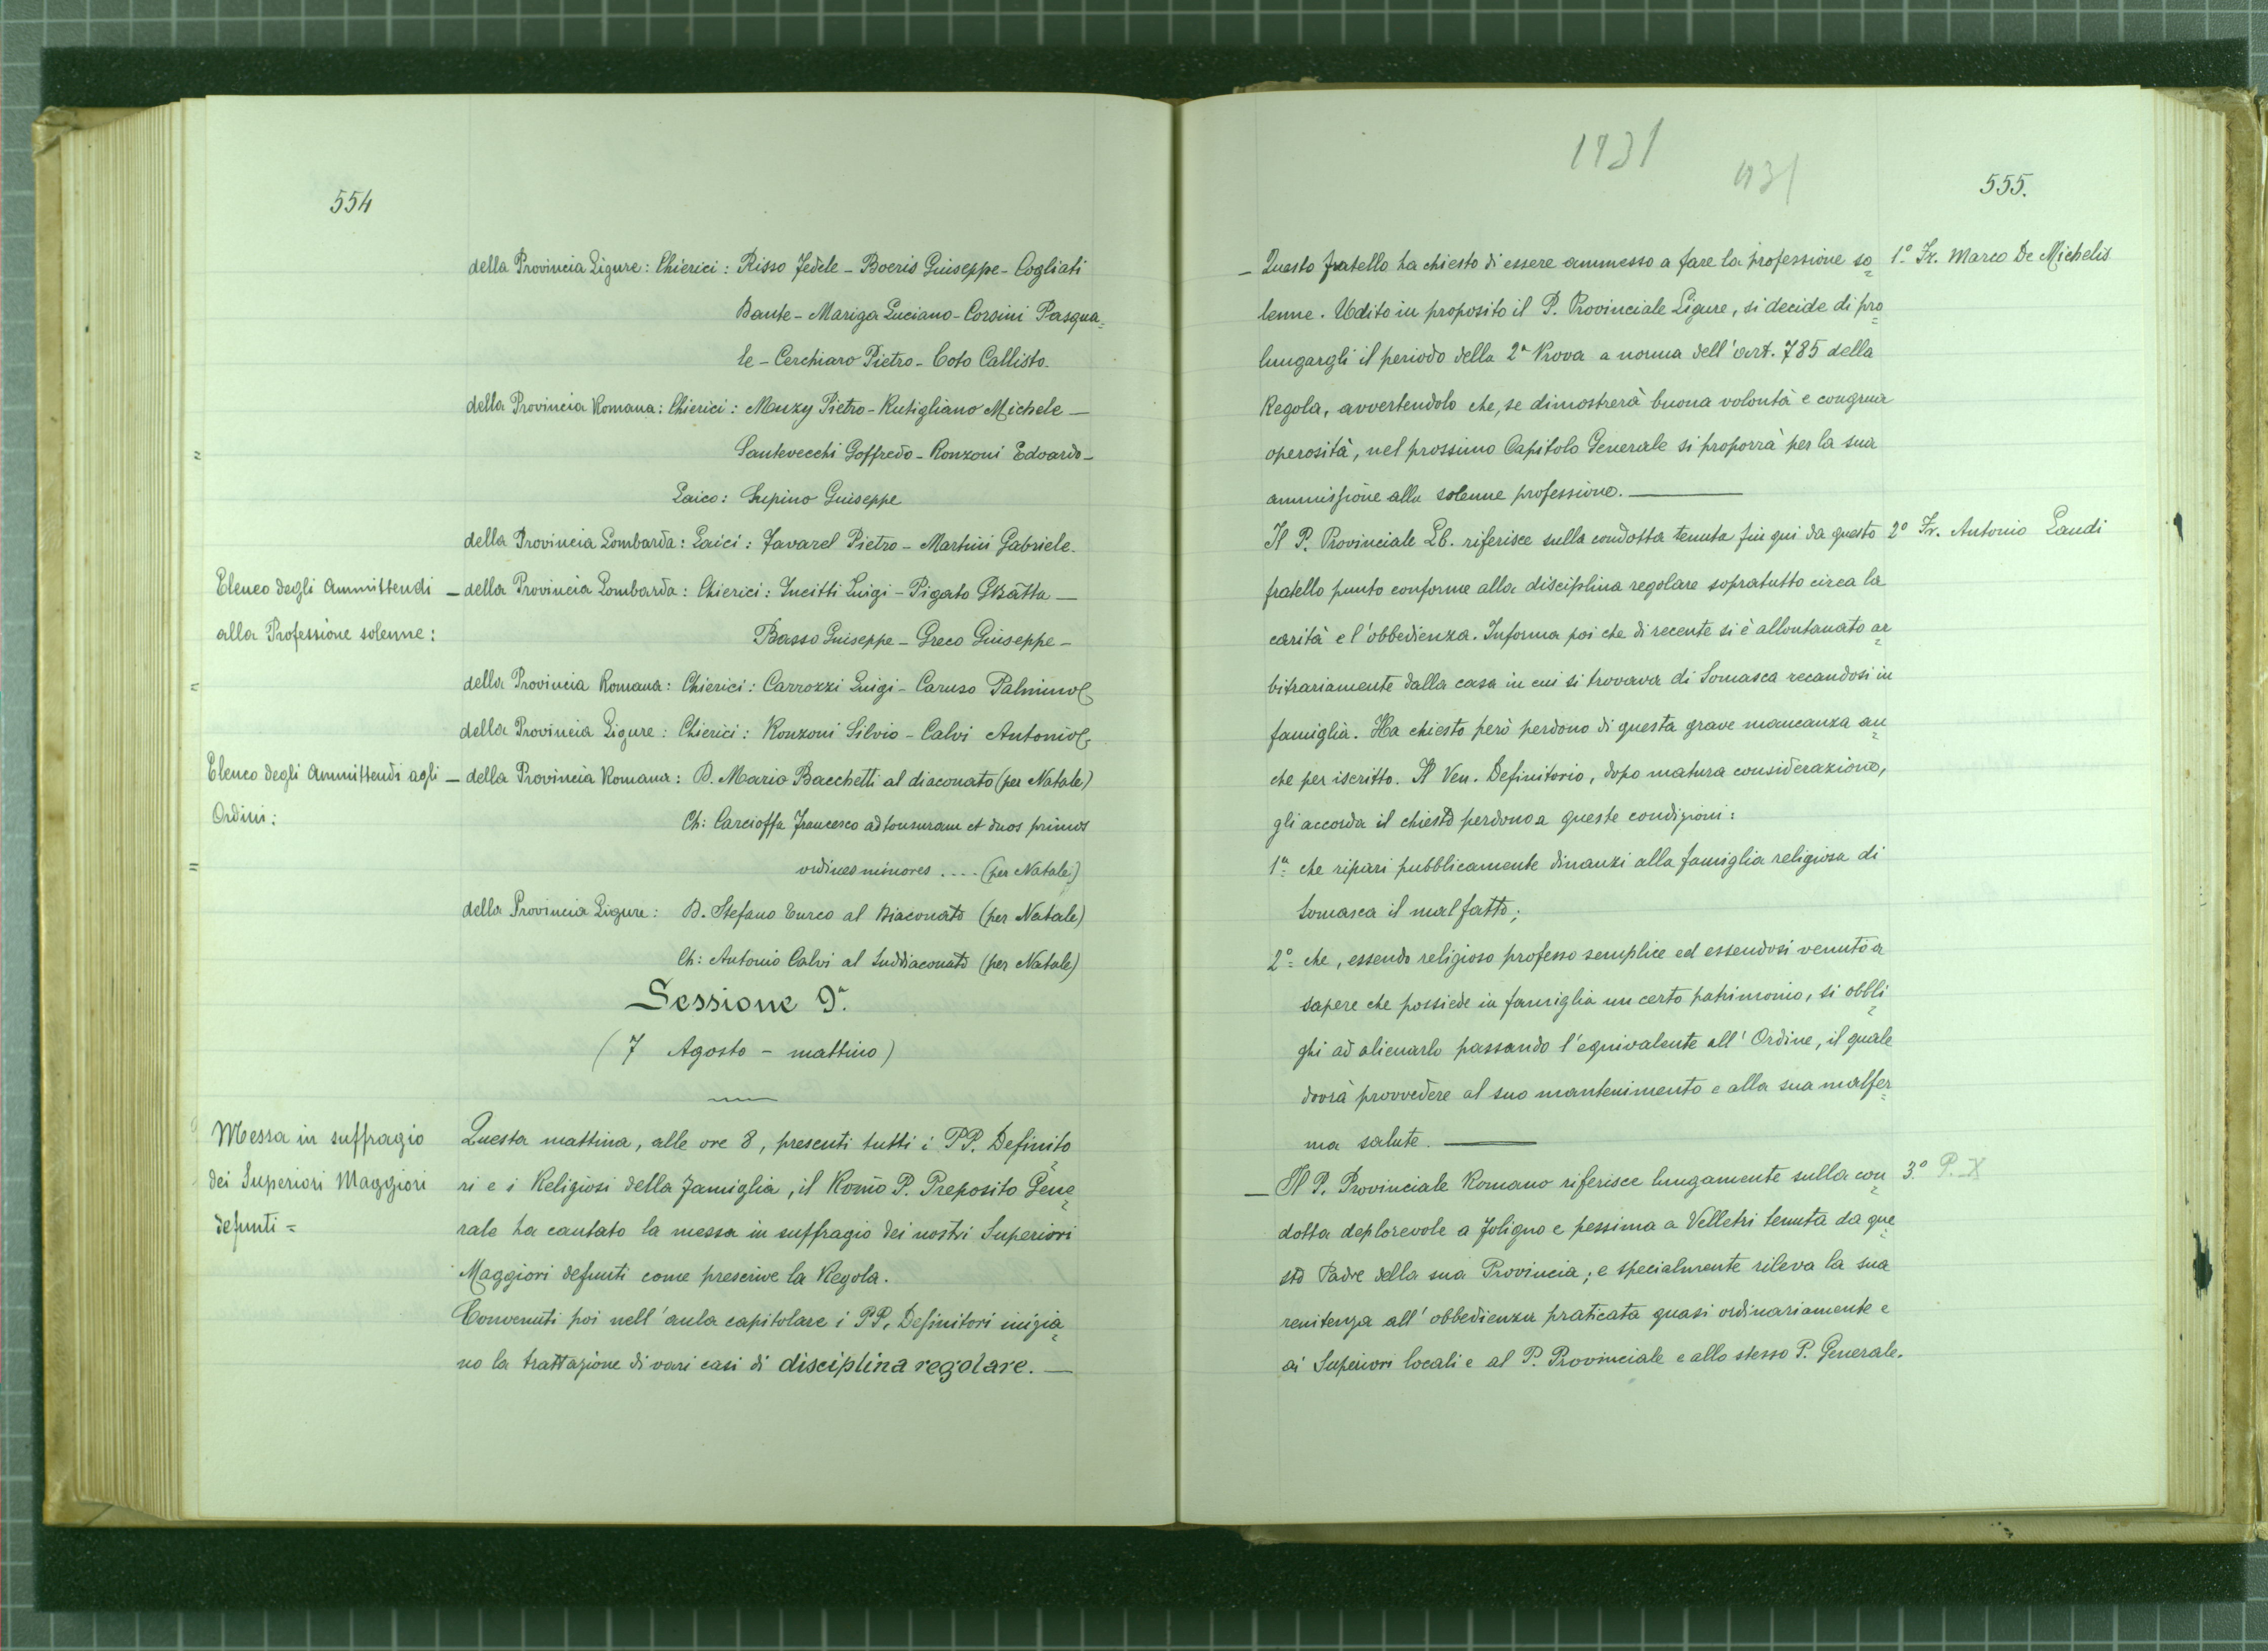 554
della Provincia Ligure: Chierici: Risso Fedele - Boeris Giuseppe - Cogliati
Dante - Mariga Luciano - Corsini Pasqua=
le - Cerchiaro Pietro - Coto Callisto.
della Provincia Romana: Chierici: Muzy Pietro - Rutigliano Michele -
Santevecchi Goffredo - Ronzoni Edoardo -
Laico: Supino Giuseppe
della Provincia Lombarda: Laici: Favarel Pietro - Martini Gabriele.
Elenco degli Ammittendi
alla Professione solenne:
- della Provincia Lombarda: Chierici: Incitti Luigi - Pigato GBatta -
Basso Giuseppe - Greco Giuseppe -
della Provincia Romana: Chierici: Carrozzi Luigi - Caruso Palmino
della Provincia Ligure: Chierici: Ronzoni Silvio - Calvi Antonio
Elenco degli Ammittendi agli
Ordini:
- della Provincia Romana: D. Mario Bacchetti al diaconato (per Natale)
Ch: Carcioffa Francesco ad tonsuram et duos primos
ordines minores .... (per Natale)
della Provincia Ligure: D. Stefano Turco al Diaconato (per Natale)
Ch: Antonio Calvi al Suddiaconato (per Natale)
Sessione 9ª.
(7 Agosto - mattino)
Messa in suffragio
dei Superiori Maggiori
defunti =
Questa mattina, alle ore 8, presenti tutti i PP. Definito=
ri e i Religiosi della famiglia, il Rv̄mo P. Preposito Gene=
rale ha cantato la messa in suffragio dei nostri Superiori
Maggiori defunti come prescrive la Regola.
Convenuti poi nell'aula capitolare i PP. Definitori inizia=
no la trattazione di vari casi di disciplina regolare. -
1931
1931
555.
1º Fr. Marco De Michelis
- Questo fratello ha chiesto di essere ammesso a fare la professione so=
lenne. Udito in proposito il P. Provinciale Ligure, si decide di pro=
lungargli il periodo della 2ª Prova a norma dell'art. 785 della
Regola, avvertendolo che, se dimostrerà buona volontà e congrua
operosità, nel prossimo Capitolo Generale si proporrà per la sua
ammissione alla solenne professione.
2º Fr. Antonio Landi
Il P. Provinciale Lb. riferisce sulla condotta tenuta fin qui da questo
fratello punto conforme alla disciplina regolare sopratutto circa la
carità e l'obbedienza. Informa poi che di recente si è allontanato ar=
bitrariamente dalla casa in cui si trovava di Somasca recandosi in
famiglia. Ha chiesto però perdono di questa grave mancanza an=
che per iscritto. Il Ven. Definitorio, dopo matura considerazione,
gli accorda il chiesto perdono a queste condizioni:
1ª: che ripari pubblicamente dinanzi alla famiglia religiosa di
Somasca il mal fatto;
2º: che, essendo religioso professo semplice ed essendosi venuto a
sapere che possiede in famiglia un certo patrimonio, si obbli=
ghi ad alienarlo passando l'equivalente all'Ordine, il quale
dovrà provvedere al suo mantenimento e alla sua malfer=
ma salute.
3º P. X
- Il P. Provinciale Romano riferisce lungamente sulla con=
dotta deplorevole a Foligno e pessima a Velletri tenuta da que=
sto Padre della sua Provincia; e specialmente rileva la sua
renitenza all'obbedienza praticata quasi ordinariamente e
ai Superiori locali e al P. Provinciale e allo stesso P. Generale.